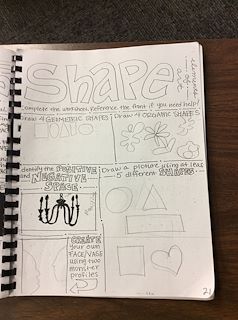 Shape
elements of art
Complete the worksheet. Reference the front if you need help!
Draw 4 GEOMETRIC SHAPES
Draw 4 ORGANIC SHAPES
Identify the POSITIVE
and NEGATIVE
SPACE
Draw a picture using at least
5 different SHAPES
CREATE
your own
FACE/VASE
using two
monster
profiles